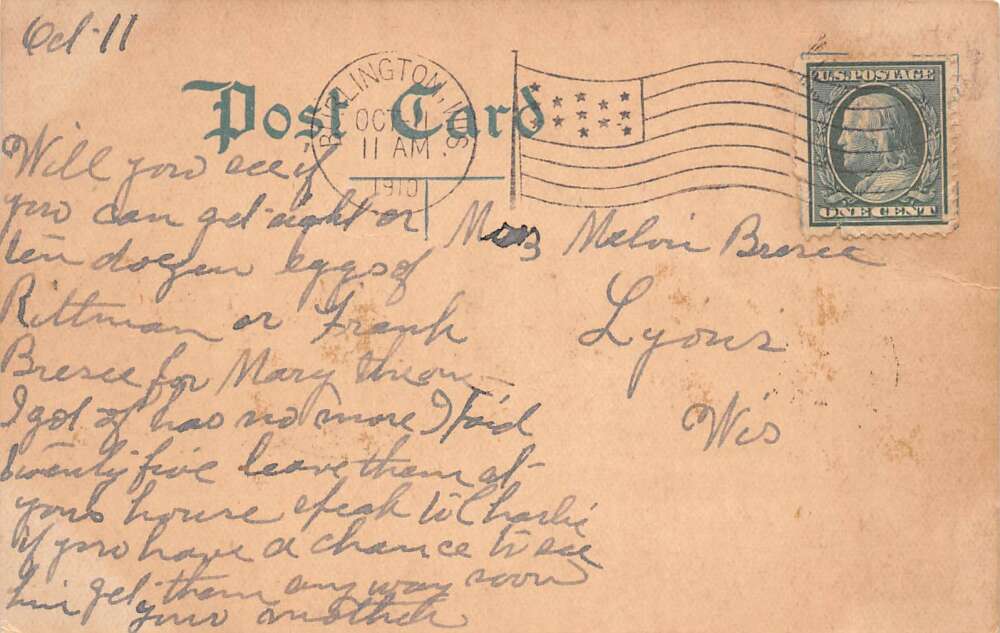 Oct-11
Post Card
BURLINGTON, WIS.
OCT 11
11 AM
1910
U.S. POSTAGE
ONE CENT
Will you see if
you can get eight or
ten dozen eggs of
Rittman or Frank
Bresee for Mary them
I got of has no more I paid
twenty five leave them at
your house speak to Charlie
if you have a chance to see
him get them any way soon
your mother
Mrs Melvin Bresee
Lyons
Wis